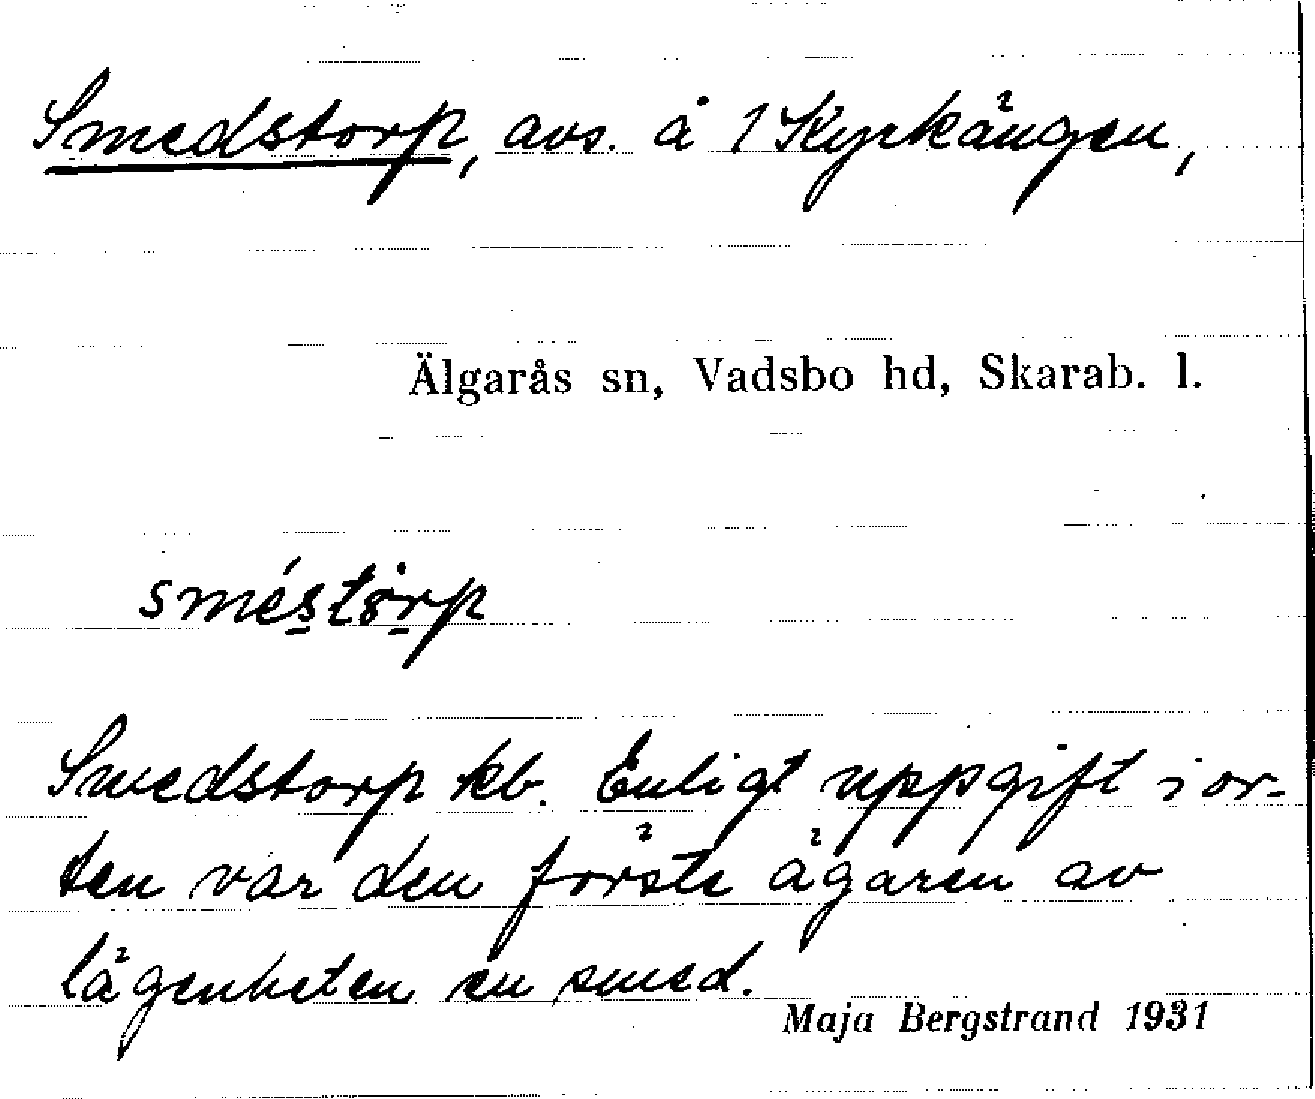 Smedstorp, avs. å 1 Kyrkängen,
Älgarås sn, Vadsbo hd, Skarab. l.
sméstörp
Smedstorp kb. Enligt uppgift i or-
ten var den förste ägaren av
lägenheten en smed.
Maja Bergstrand 1931